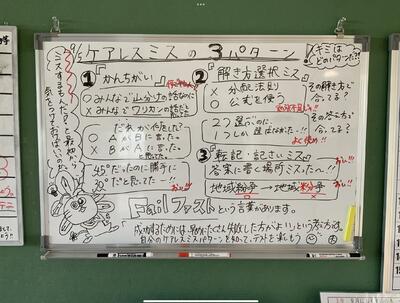 9/5 ケアレスミスの3パターン
キミは
どのパターン?!
① かんちがい
○みんなで山分けの話なのに
×みんなでワリカンの話だと
思った。
だれが何をした?
○ AがBに言った。
× BがAに言った。
45°だったのに勝手に
30°だと思ってたー!!
② 解き方選択ミス
× 分配法則
○ 公式を使う
その解き方で
合ってる?
2つ選ぶのに
1つしか選ばなかった…!!
その答え方で
合ってる?
よく読め!!
③ 転記・記さいミス
おしい!!
答案に書く場所ミスったー!!
地域紛争→地域粉争
Failファスト という言葉があります。
成功するためには、早めにたくさん失敗した方がよい、という考え方。
自分のケアレスミスパターンを知って、テストを楽しもう